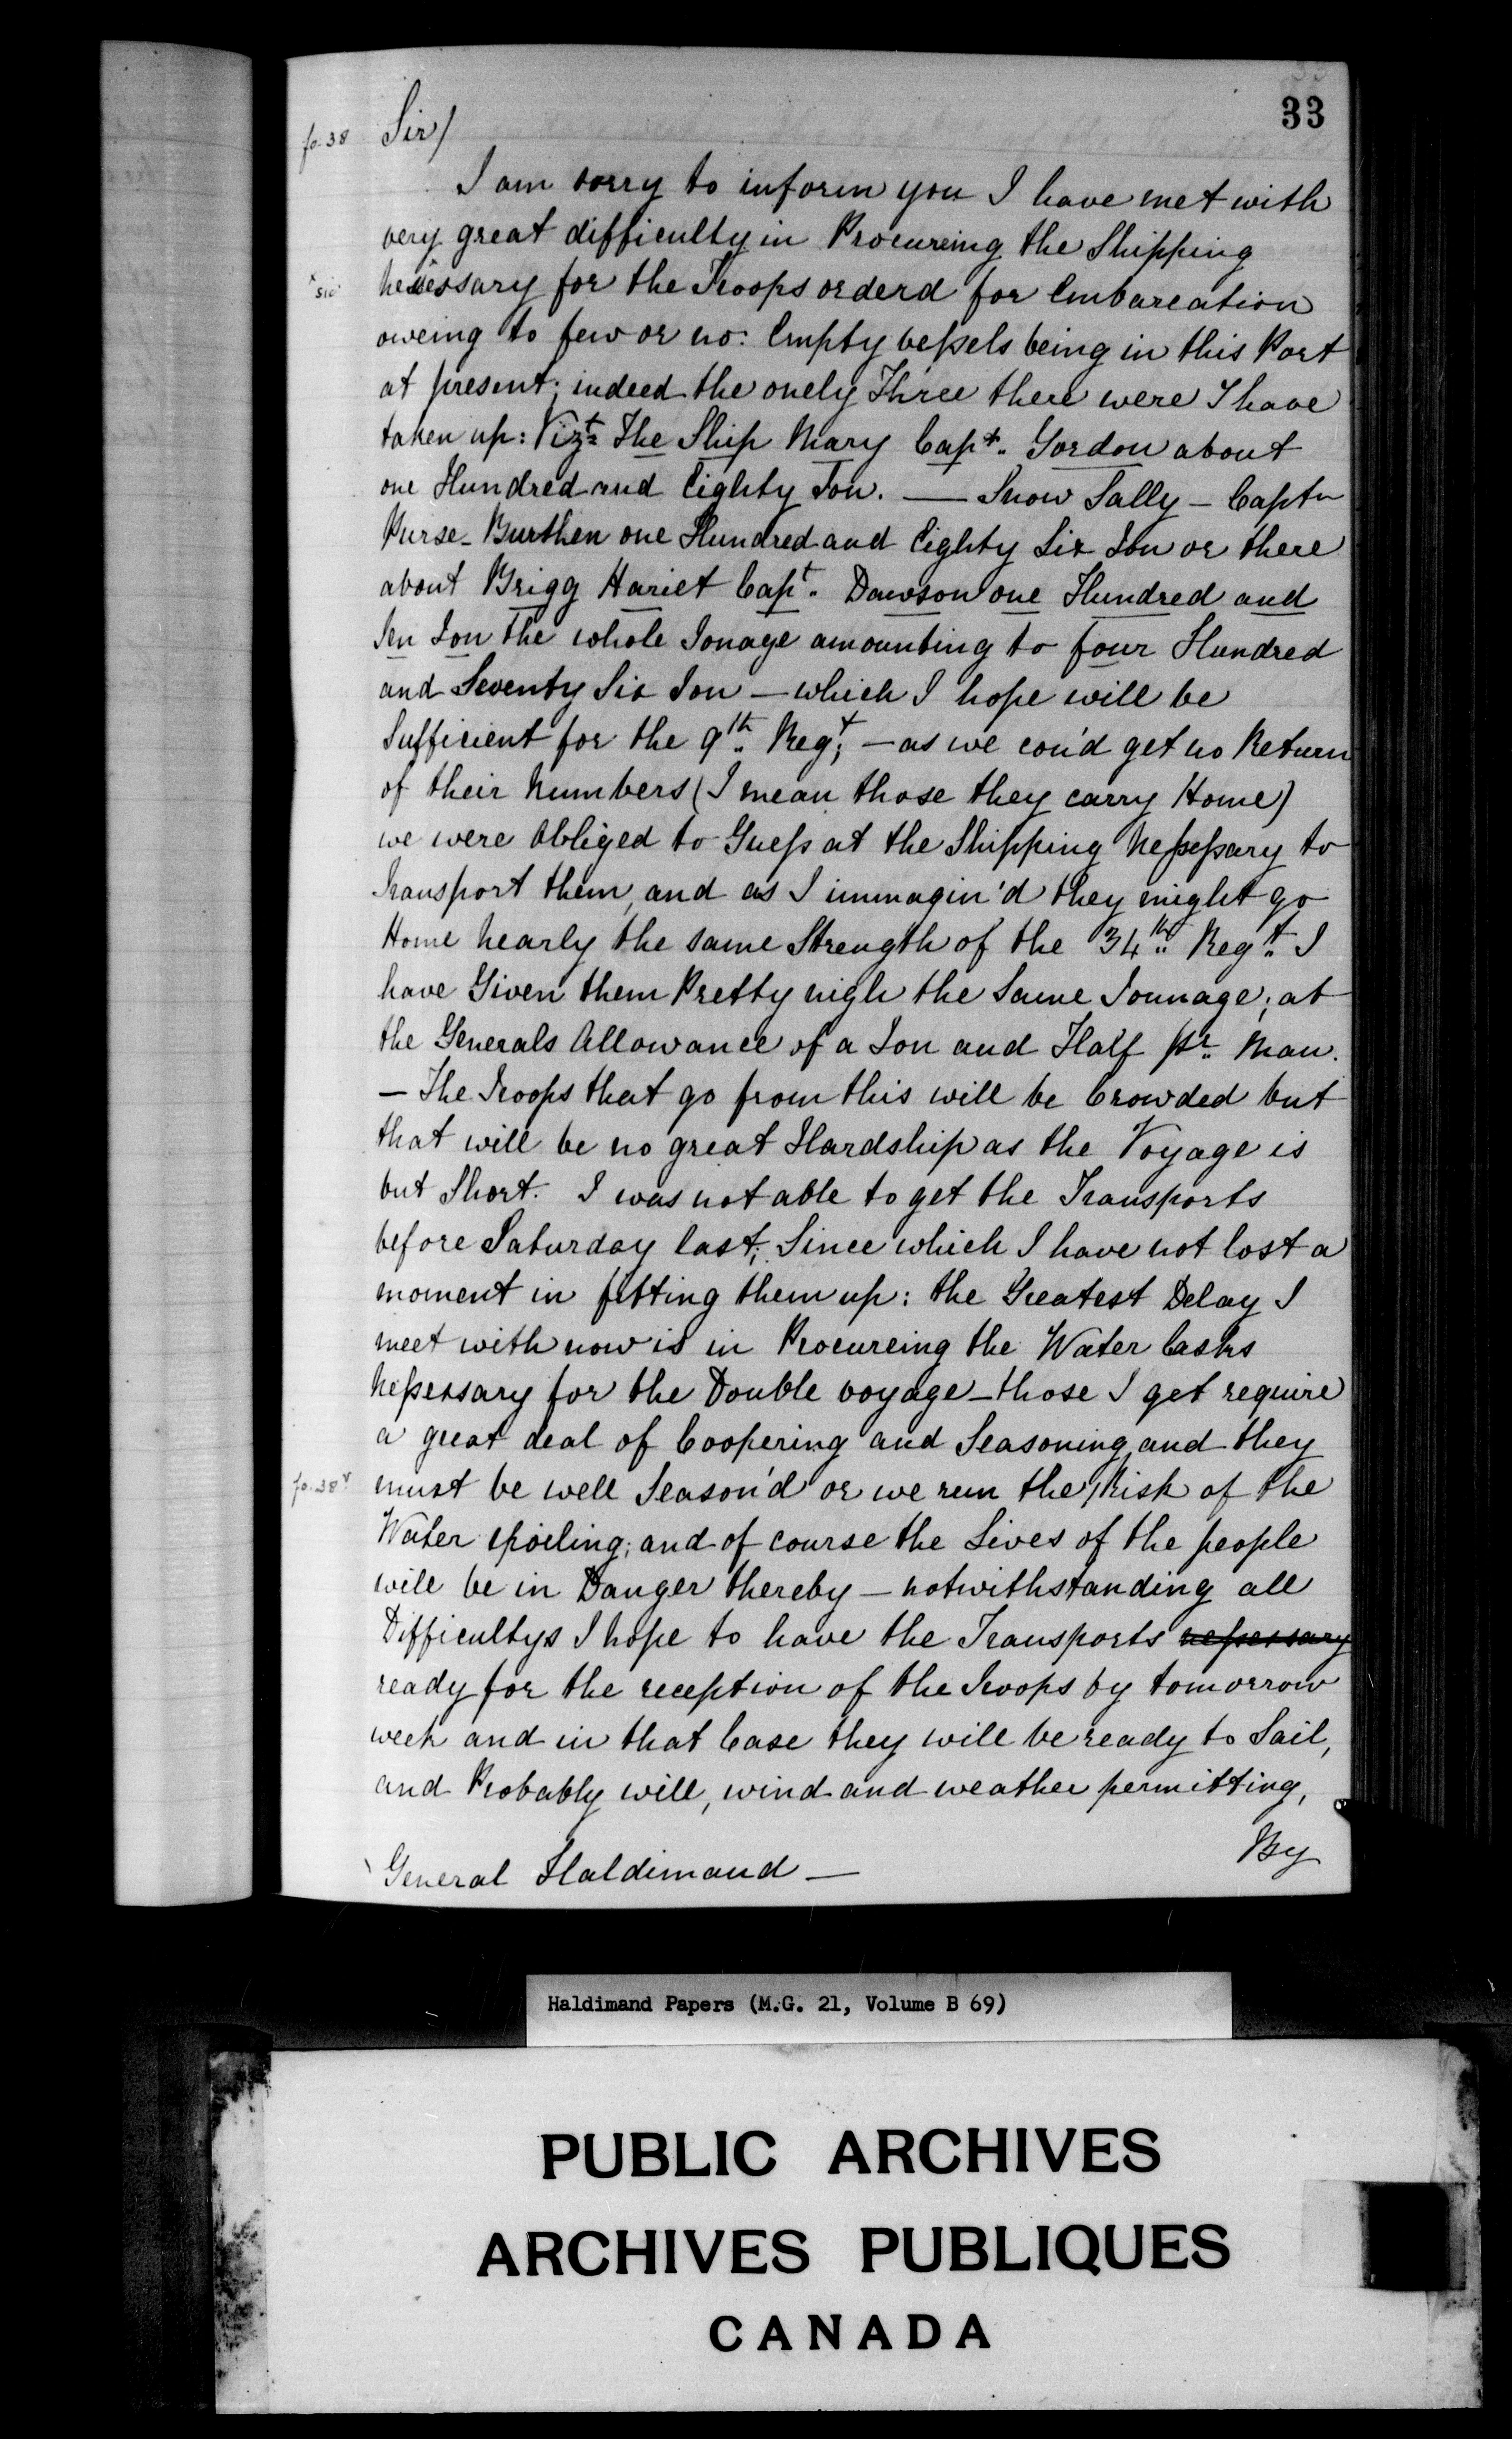 33
fo. 38 Sir/
I am sorry to inform you I have met with
very great difficulty in Procureing the Shipping
x sic Necessary for the Troops orderd for Embarcation
oweing to few or no: Empty veßels being in this Port
at present; indeed the onely Three there were I have
taken up: Vizt: The Ship Mary Capt. Gordon about
one Hundred and Eighty Ton. — Snow Sally – Captn
Purse – Burthen one Hundred and Eighty Six Ton or there
about Brigg Hariet Capt. Dawson one Hundred and
Ten Ton the whole Tonage amounting to four Hundred
and Seventy Six Ton – which I hope will be
Sufficient for the 9th. Regt; – as we cou'd get no Return
of their Numbers (I mean those they carry Home)
we were Obliged to Gueß at the Shipping Neßeßary to
Transport them, and as I immagin'd they might go
Home Nearly the same Strength of the 34th. Regt. I
have Given them Pretty nigh the Same Tonnage; at
the Generals Allowance of a Ton and Half pr. Man.
– The Troops that go from this will be Crowded but
that will be no great Hardship as the Voyage is
but Short. I was not able to get the Transports
before Saturday last; Since which I have not lost a
moment in fitting them up: the Greatest Delay I
meet with now is in Procureing the Water Casks
Neßessary for the Double voyage – those I get require
a great deal of Coopering and Seasoning, and they
fo. 38v must be well Season'd or we run the Risk of the
Water spoiling; and of course the Lives of the people
will be in Danger thereby – notwithstanding all
Difficultys I hope to have the Transports neßessary
ready for the reception of the Troops by tomorrow
week and in that Case they will be ready to Sail,
and Probably will, wind and weather permitting,
By
General Haldimand —
Haldimand Papers (M.G. 21, Volume B 69)
PUBLIC ARCHIVES
ARCHIVES PUBLIQUES
CANADA